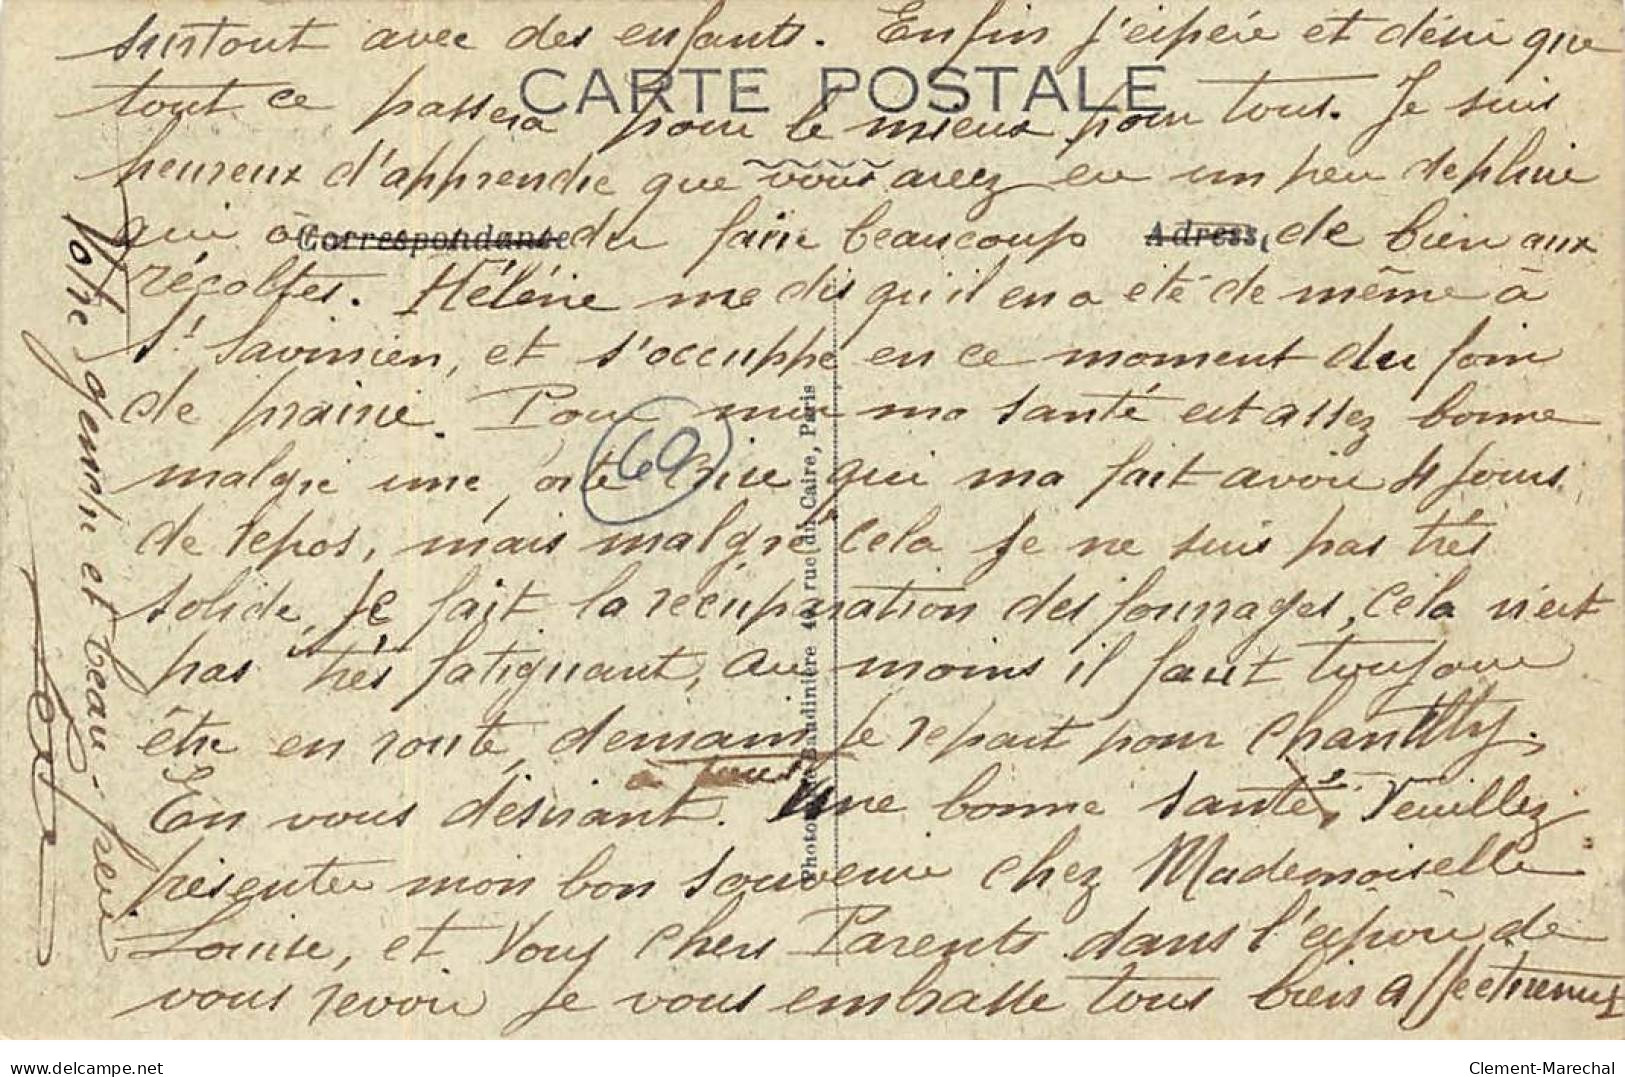 surtout avec des enfants. Enfin j'éspére et désire que
CARTE POSTALE
tout ce passera pour le mieux pour tous. Je suis
heureux d'apprendre que vous avez eu un peu de pluie
qui à du faire beaucoup de bien aux
Correspondance
Adresse
récoltes. Hélène me dis qu'il en a eté de même à
St Savinien, et s'occuppe en ce moment du foin
de prairie. Pour moi ma santé est assez bonne
malgre une crise qui ma fait avoir 4 jours
60
de repos, mais malgré cela je ne suis pas très
solide, Je fait la récupération des fourrages, cela n'est
pas très fatiguant, au moins il faut toujours
être en route, demain je repart pour Chantilly.
En vous désirant. Une bonne santé, Veuillez
présenter mon bon souvenir chez Mademoiselle
Louise, et Vous chers Parents dans l'espoir de
vous revoir je vous embrasse tous bien affectueuse
Votre gendre et beau-frère
Photo Baudinière 40, rue du Caire, Paris
delcampe.net
Clement-Marechal